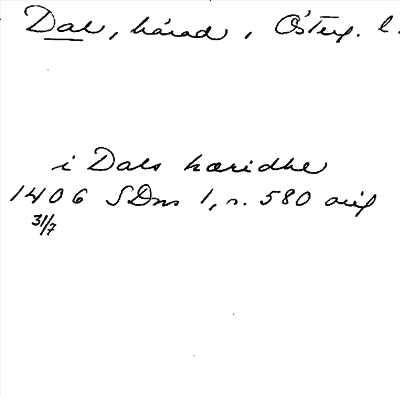 Dal, härad, Österg. l.
i Dals hæridhe
1406 SDns 1, n. 580 avig
31/7